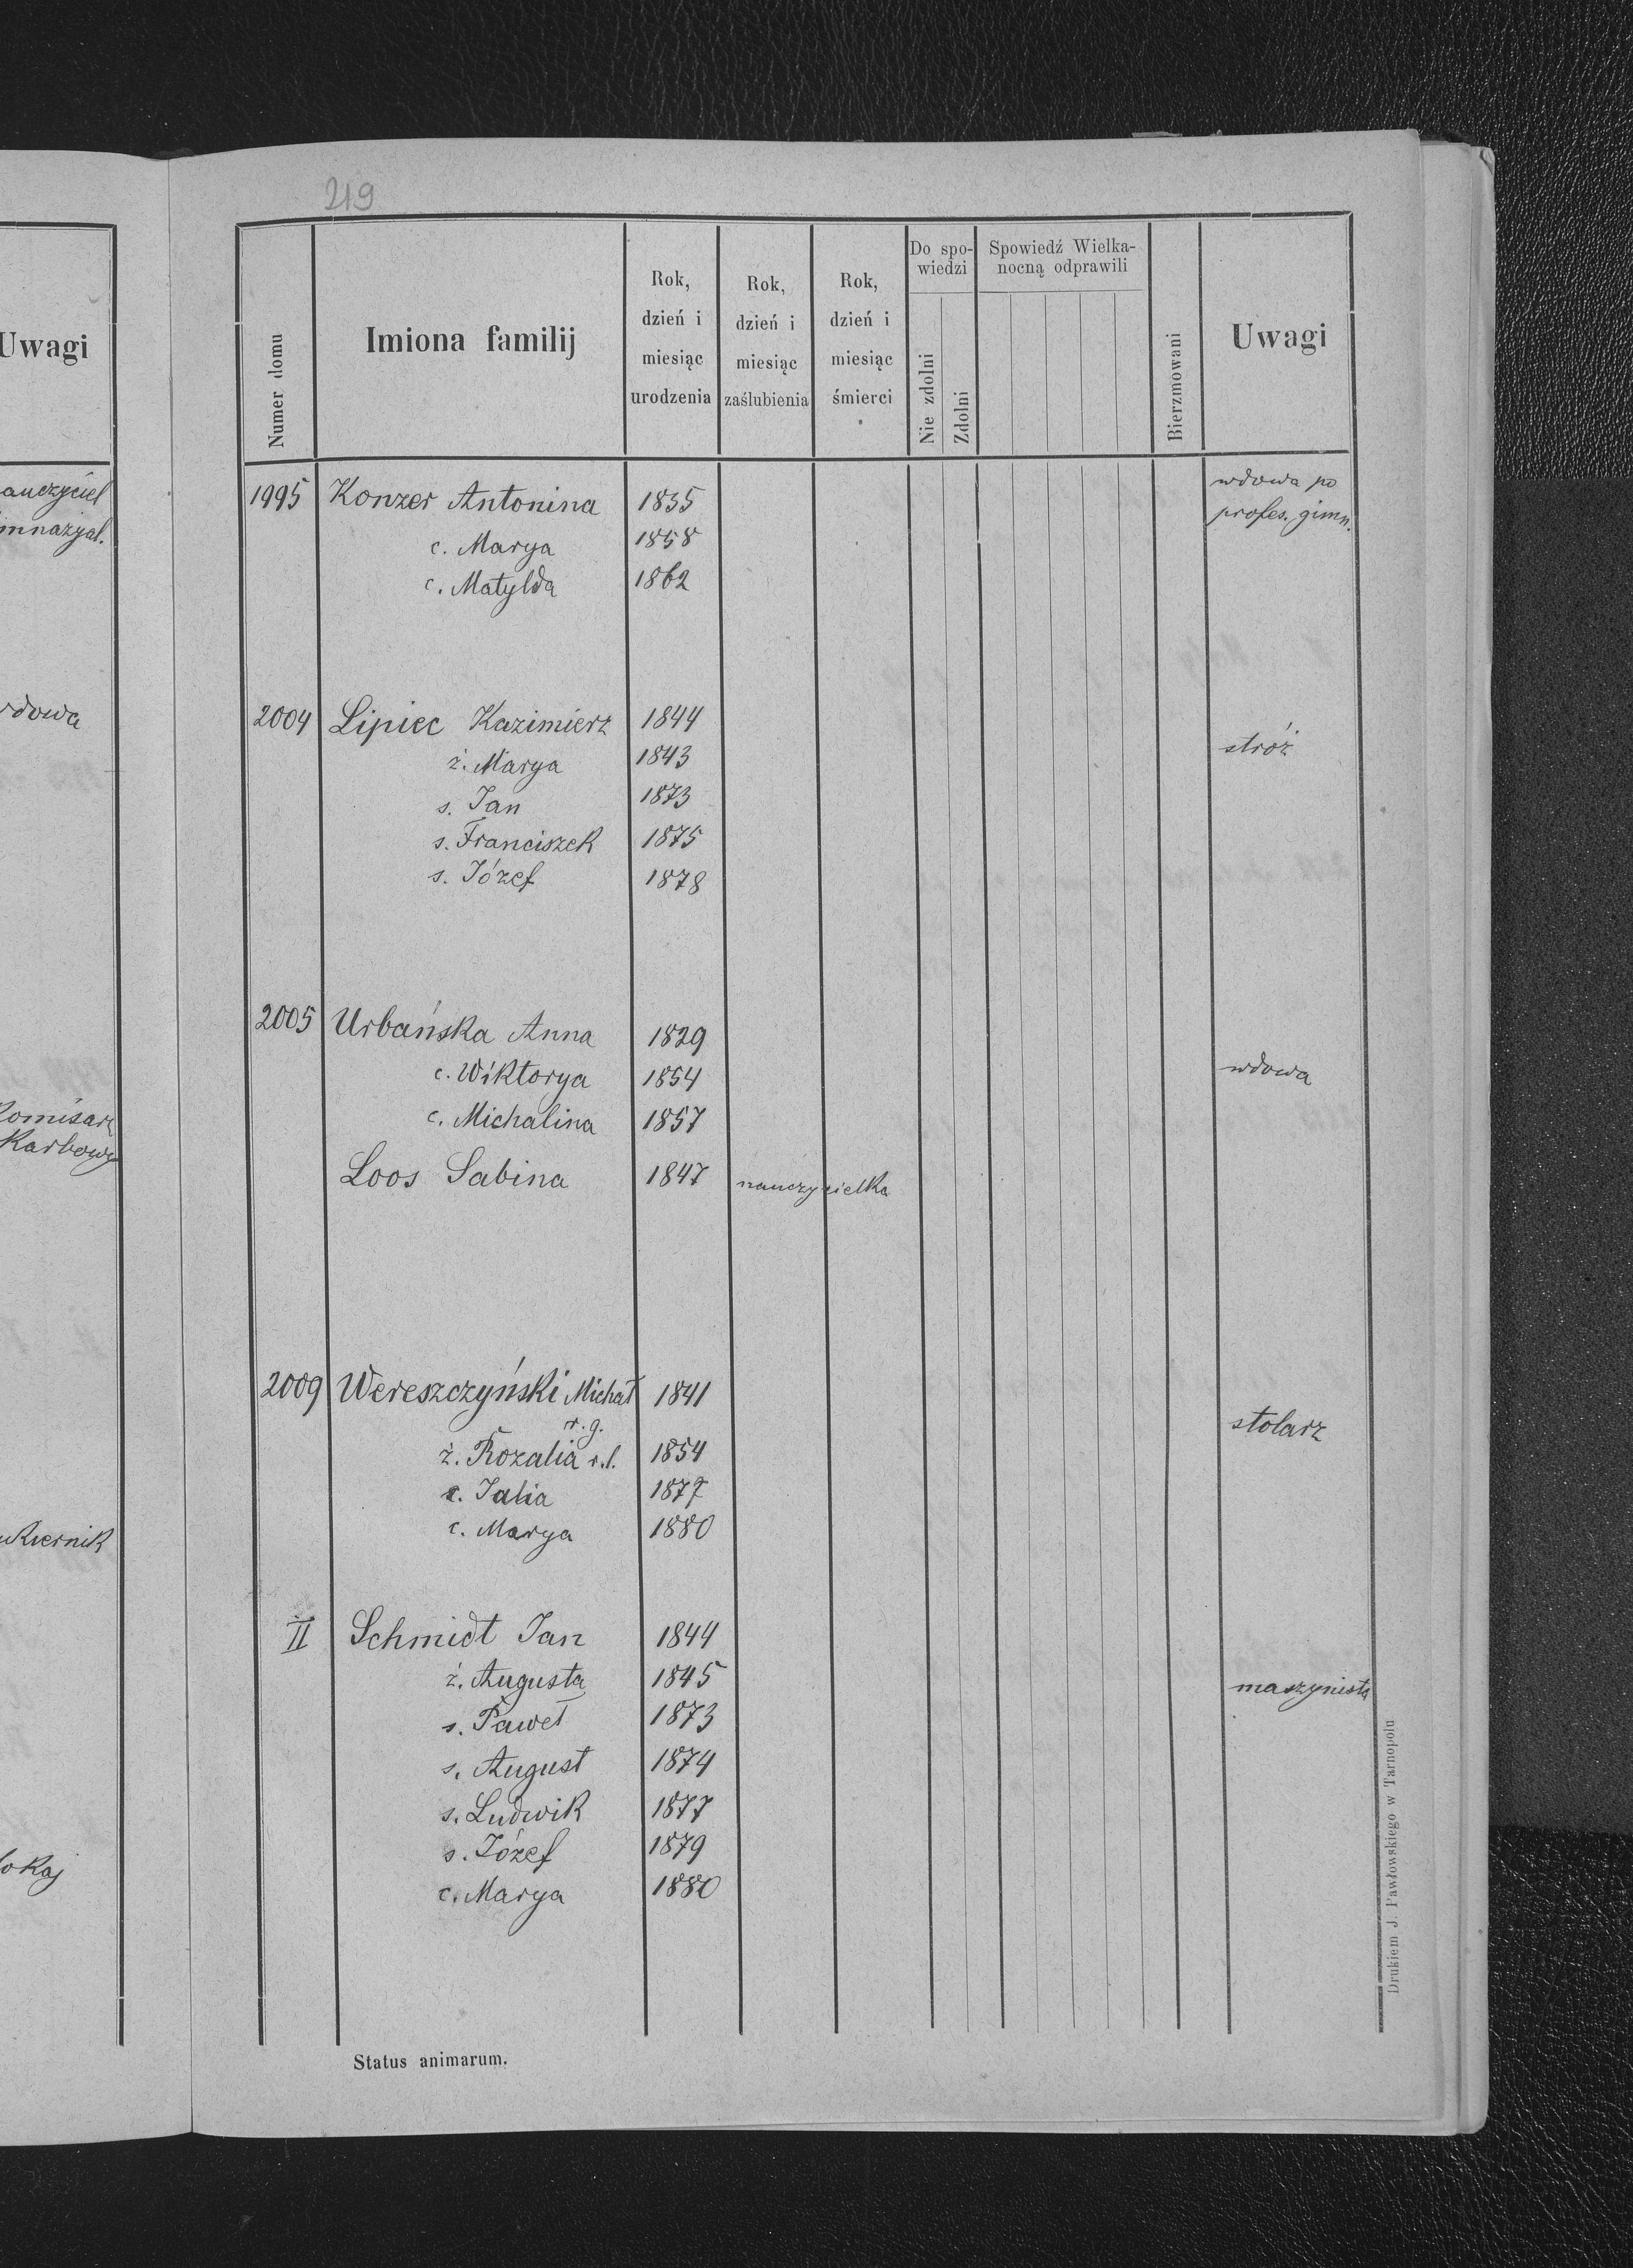 219
Uwagi
Numer domu
Imiona familij
Rok,
dzień i
miesiąc
urodzenia
Rok,
dzień i
miesiąc
zaślubienia
Rok,
dzień i
miesiąc
śmierci
Do spo-
wiedzi
Nie zdolni
Zdolni
Spowiedź Wielka-
nocną odprawili
Bierzmowani
Uwagi
auczyciel
mnazyal.
dowa
Komisarz
Karbowy
Kiernik
lokaj
1995 Konzer Antonina 1835 wdowa po
profes. gimn.
c. Marya 1858
c. Matylda 1862
2004 Lipiec Kazimierz 1844
ż. Marya 1843 stróż
s. Jan 1873
s. Franciszek 1875
s. Józef 1878
2005 Urbańska Anna 1829
c. Wiktorya 1854 wdowa
c. Michalina 1857
Loos Sabina 1847 nauczycielka
2009 Wereszczyński Michał 1841
r. g. stolarz
ż. Rozalia r. l. 1854
c. Julia 1877
c. Marya 1880
II Schmidt Jan 1844
ż. Augusta 1845 maszynista
s. Paweł 1873
s. August 1874
s. Ludwik 1877
s. Józef 1879
c. Marya 1880
Status animarum.
Drukiem J. Pawłowskiego w Tarnopolu